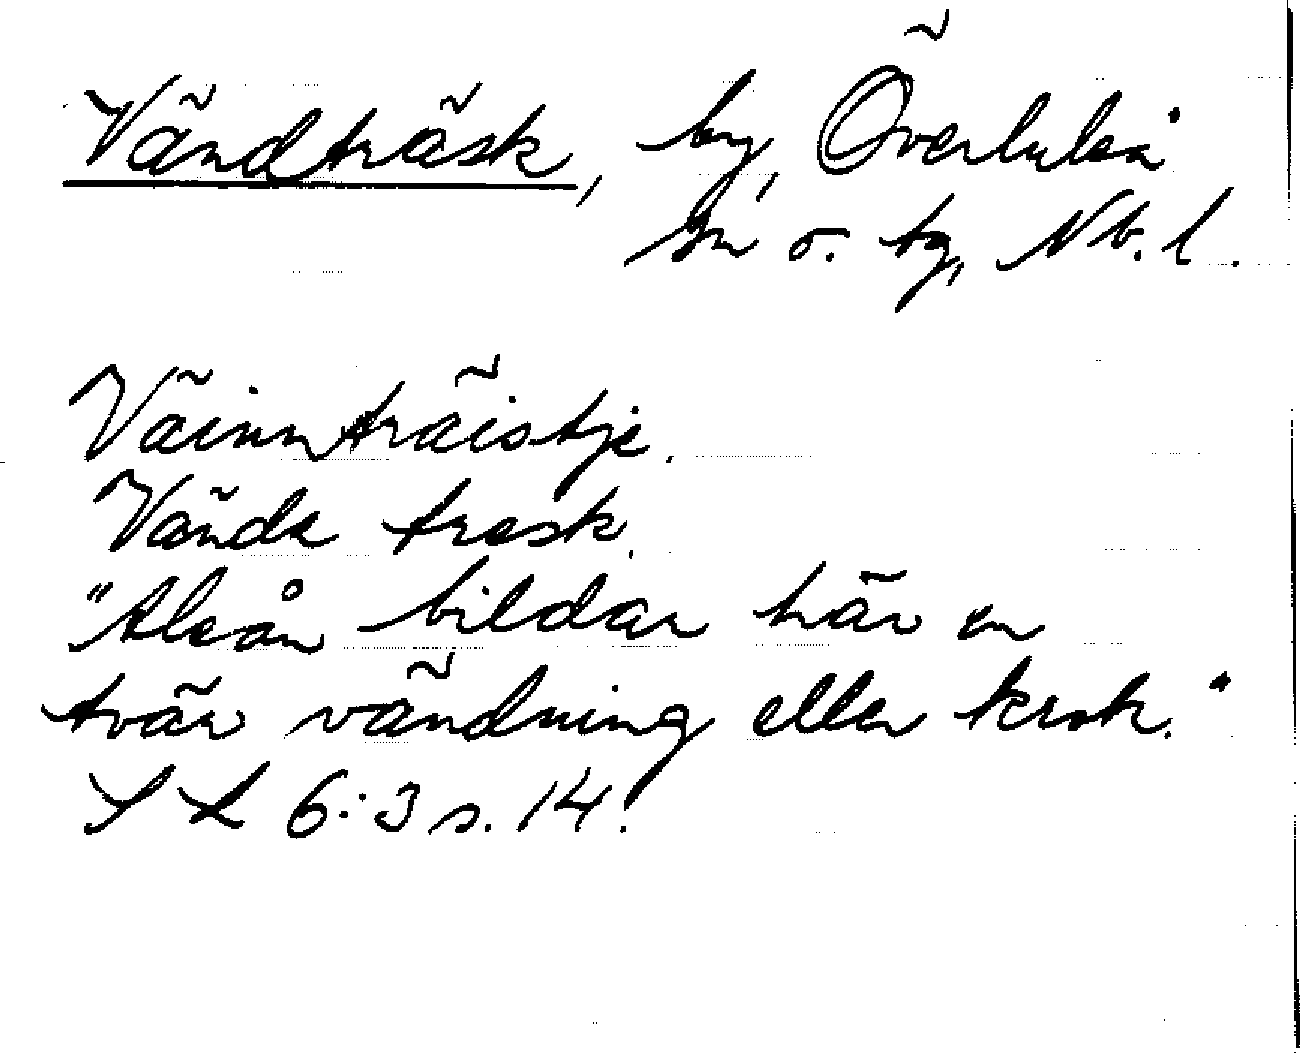 Vändträsk, by, Överluleå
sn o. tg, Nb.l.
Väinnträistje.
Vända träsk.
"Aleån bildar här en
tvär vändning eller krok."
SL 6:3 s. 14.